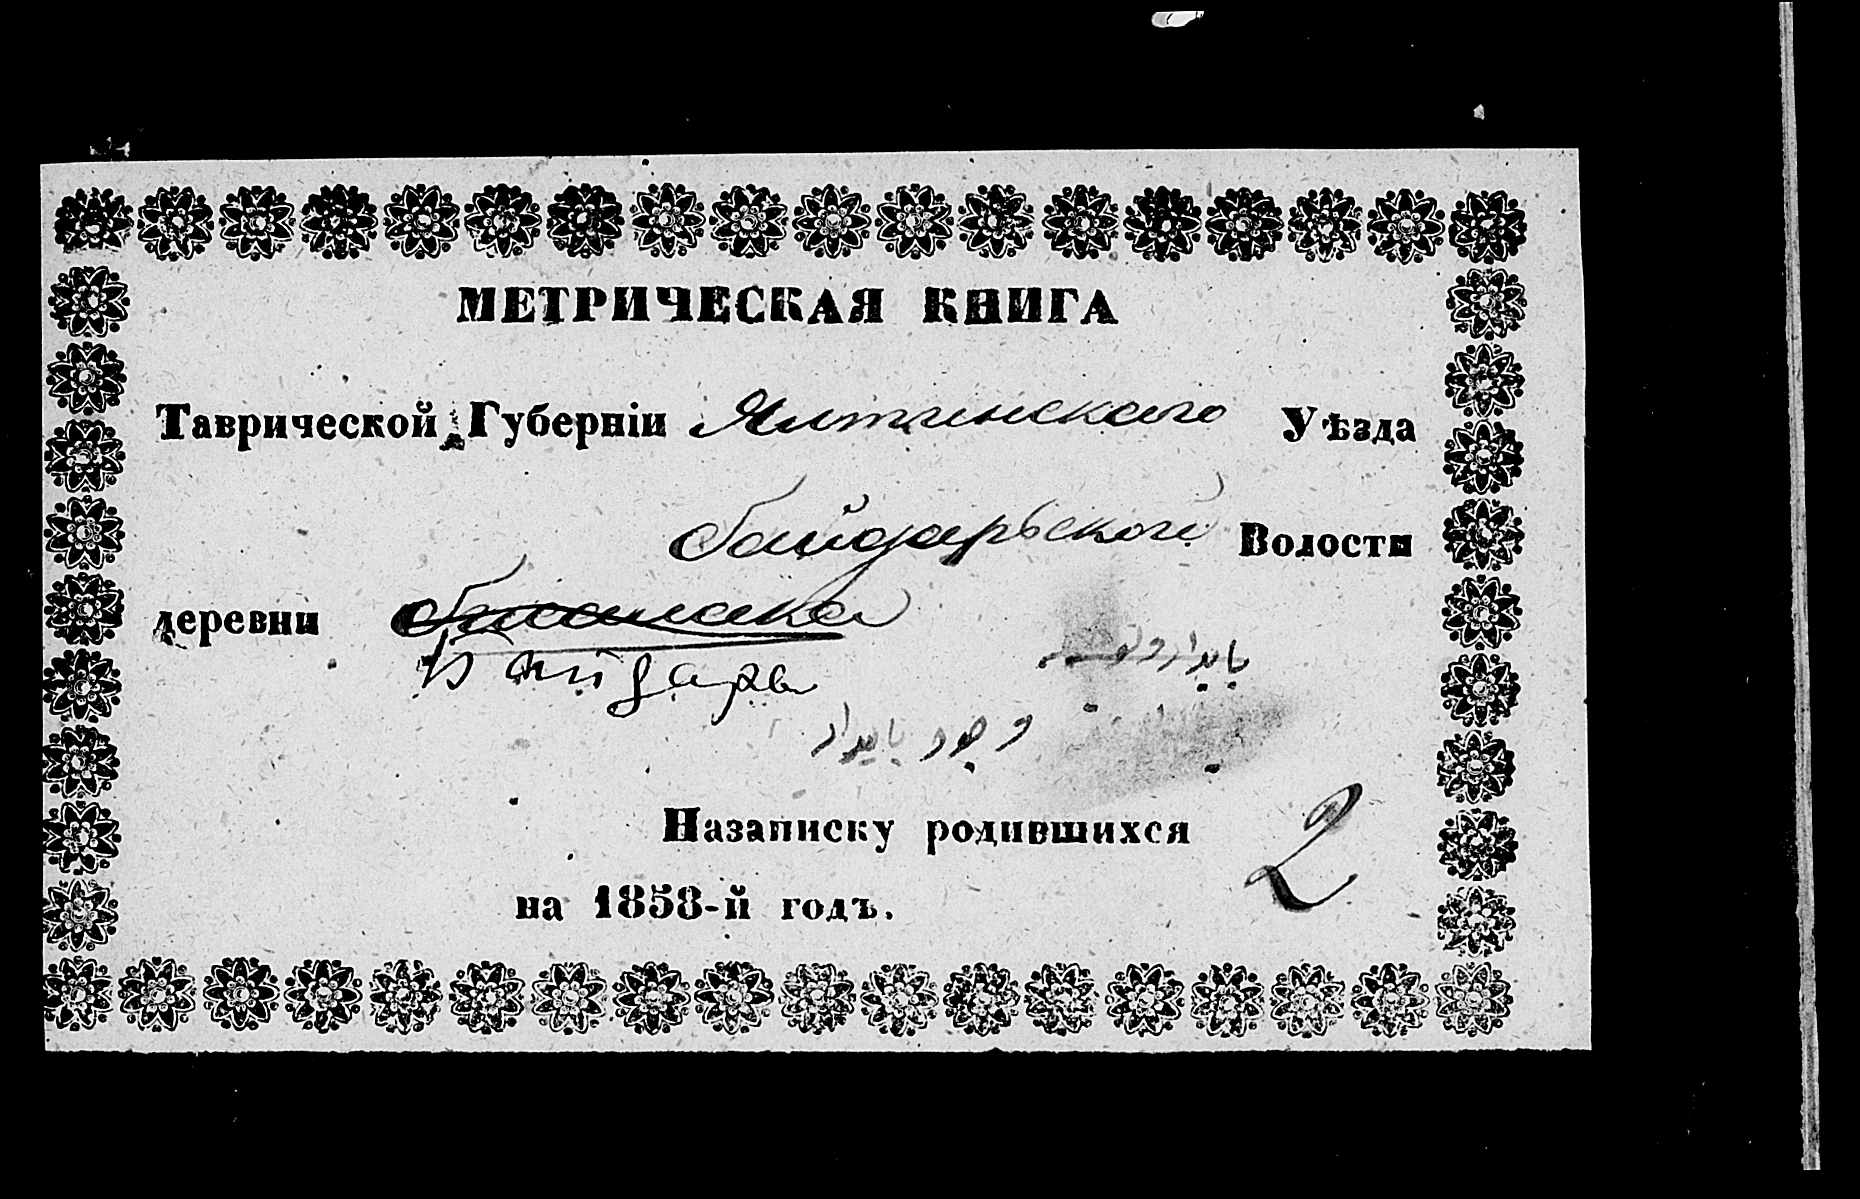 МЕТРИЧЕСКАЯ КНИГА
Таврической Губерніи Ялтинскаго Уѣзда
байдарьской Волости
деревни
Байдары
بايدار
بايدار
Назаписку родившихся
2
на 1858-й годъ.